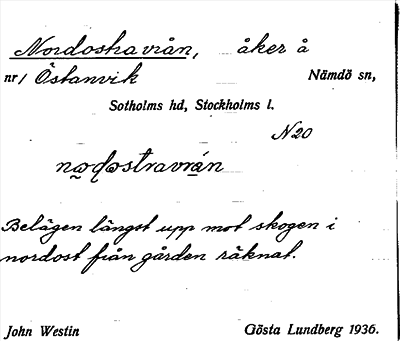 Nordostra vrån, åker å
nr 1 Östanvik Nämdö sn,
Sotholms hd, Stockholms l.
N20
Belägen längst upp mot skogen i
nordost från gården räknat.
John Westin Gösta Lundberg 1936.